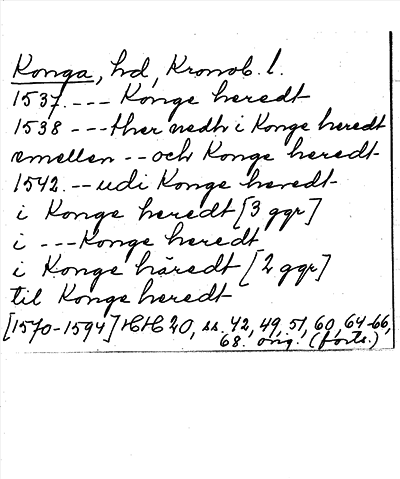 Konga, hd, Kronob. l.
1537. --- Konge heredt
1538 --- ther nedh i Konge heredt
emellen -- och Konge heredt
1542. -- udi Konge heredt
i Konge heredt [3 ggr]
i --- Konge heredt
i Konge häredt [2 ggr]
til Konge heredt
[1570-1594] HH 20, ss. 42, 49, 51, 60, 64-66,
68. orig. (forts.)